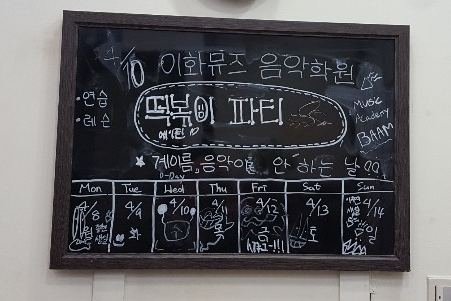 4/10 이화뮤즈 음악학원
·연습
·레슨
떡볶이 파티
MUSIC
Academy
BAAM
★ 계이름, 음악이론 안 하는 날
D-Day
Mon Tue Wed Thu Fri Sat Sun
4/8 4/9 4/10 4/11 4/12 4/13 4/14
월 화 목 금 토 일